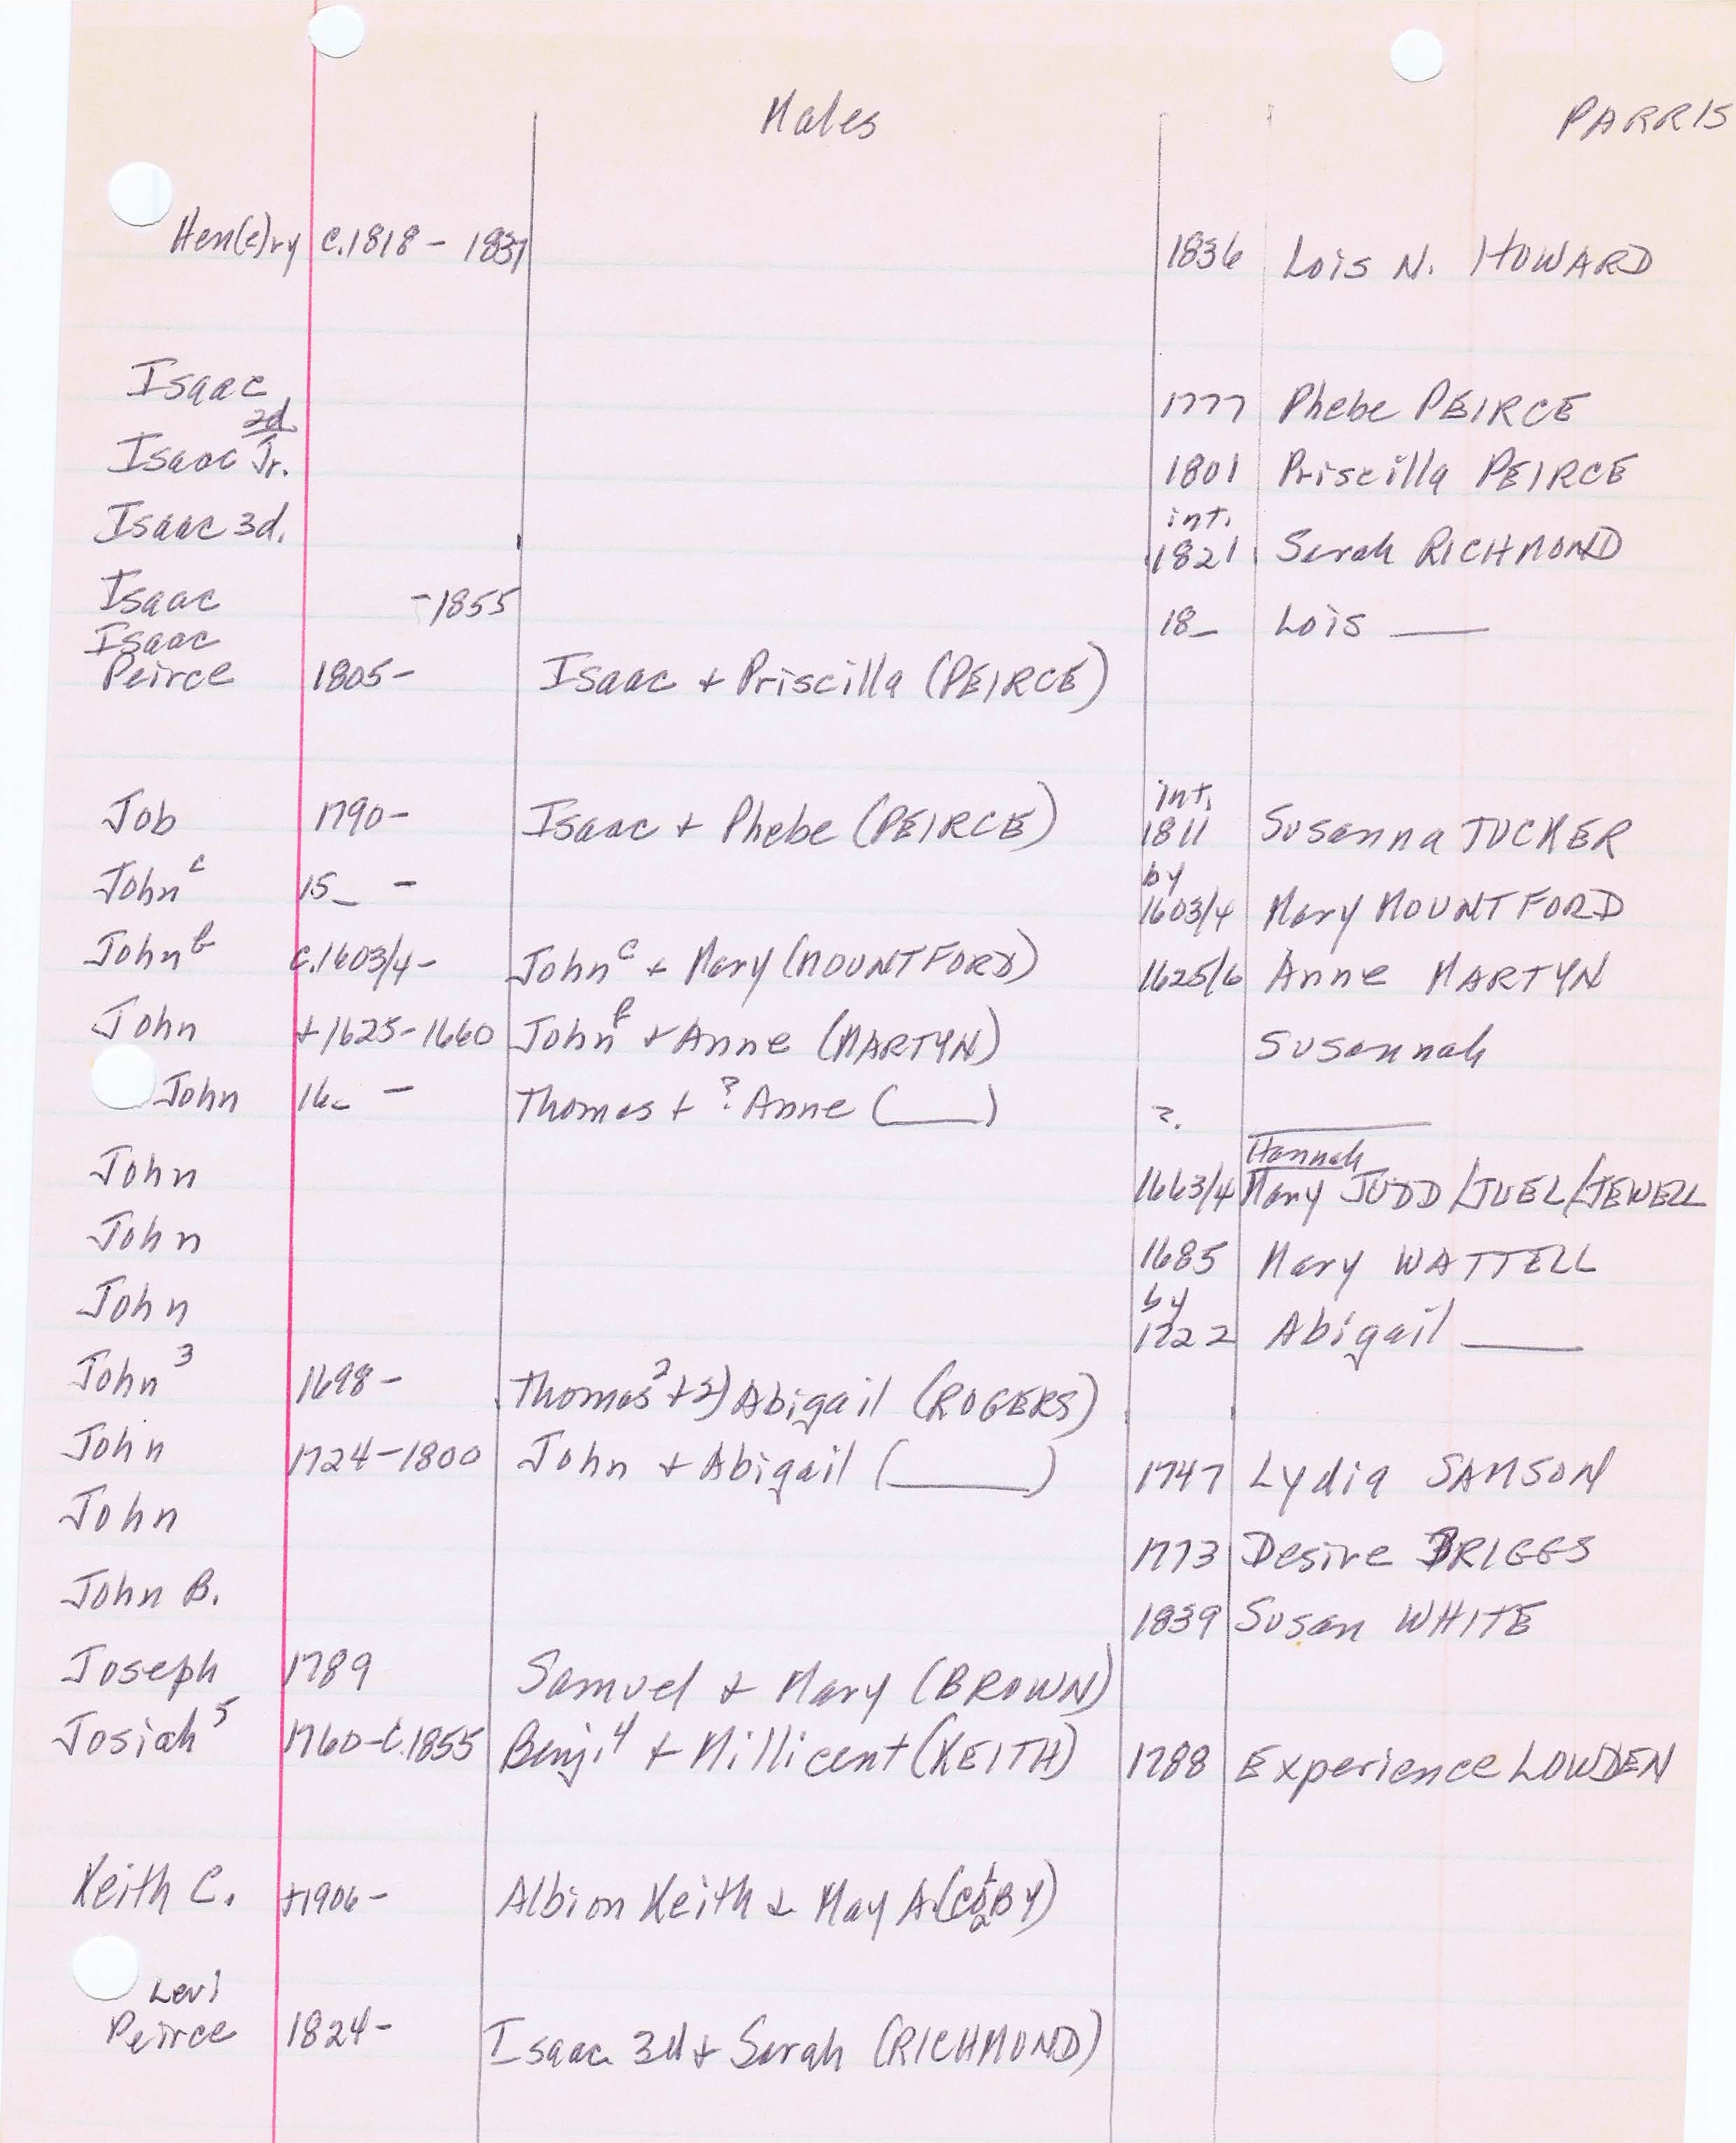 Males PARRIS
Hen(e)ry c.1818 - 1837 1836 Lois N. HOWARD
Isaac 1777 Phebe PEIRCE
2d
Isaac Jr. 1801 Priscilla PEIRCE
int.
Isaac 3d. 1821 Sarah RICHMOND
Isaac -1855 18_ Lois ___
Isaac
Peirce 1805- Isaac + Priscilla (PEIRCE)
int.
Job 1790- Isaac + Phebe (PEIRCE) 1811 Susanna TUCKER
by
John c 15_ - 1603/4 Mary MOUNTFORD
John b c.1603/4- John c + Mary (MOUNTFORD) 1625/6 Anne MARTYN
John +1625-1660 John b + Anne (MARTYN) Susannah
John 16_ - Thomas + ? Anne (___) ?. ___
Hannah
John 1663/4 Mary JUDD/JUEL/JEWELL
John 1685 Mary WATTELL
by
John 1722 Abigail ___
John 3 1698- Thomas 2 + 2) Abigail (ROGERS)
John 1724-1800 John + Abigail (___) 1747 Lydia SAMSON
John 1773 Desire BRIGGS
John B. 1839 Susan WHITE
Joseph 1789 Samuel + Mary (BROWN)
Josiah 5 1760-c.1855 Benj. 4 + Millicent (KEITH) 1788 Experience LOWDEN
Keith C. +1906- Albion Keith + May A.
Levi
Peirce 1824- Isaac 3d + Sarah (RICHMOND)